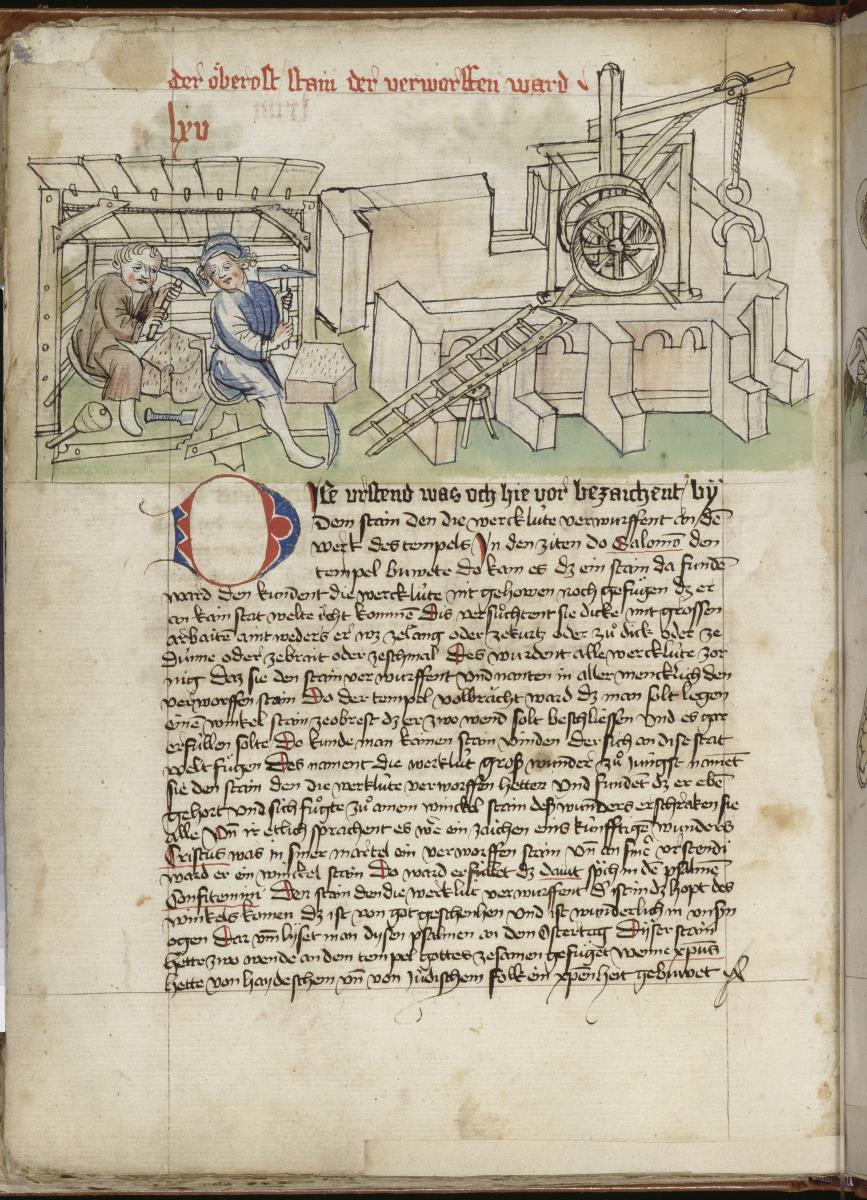 der öberost stain der verworffen ward
lxv
Dise urstend was och hie vor bezaichent by
dem stain den die wercklüte verwurffent an dē
werk des tempels In den ziten do Salomō den
tempel buwete do kam es dz ein stain da fundē
ward den kundent die wercklüte nit gehowen noch gefügen dz er
an kain stat welte icht kommē Dis versůchtent sie dicke mit grossen
arbaitē aintweders er wz zelang oder zekurtz oder zů dick oder ze
dünne oder zebrait oder zeschmal Des wurdent alle wercklüte zor
nig daz sie den stain verwurffent vnd nanten in aller mencklich den
verworffen stain Do der tempel volbrächt ward dz man solt legen
einē winkel stain zeobrest dz er zwo wend solt beschliessen vnd es gar
erfüllen solte Do kunde man kainen stain vinden der sich an dise stat
welt fügen Des nament die werklüt groß wunder zů jüngst namēt
sie den stain den die werklüte verworffen hetten vnd fundēt dz er ebē
gehort vnd sich fůgte zů ainem winckel stain deß wunders erschraken sie
alle Vn̄ ir etlich sprachent es we ein zaichen eins künfftigē wunders
Cristus was in siner martel ein verworffen stain vn̄ an sinē vrstendi
ward er ein winckel stain Do ward erfüllet dz dauit sprich in dē psalmē
Confitemini Den stain den die werklüt verwurffent d' ist in dz hopt des
winkels komen dz ist von got geschenhen vnd ist wunderlich in vnsn
ogen Dar vm̄ lyset man dysen psalmen an dem Ostertag Dyser stain
hette zwo wende an dem tempel gottes zesamen gefüget wenne xpūs
hette von haydeschem vn̄ von Jüdischem folk ein xpēnheit gebuwet